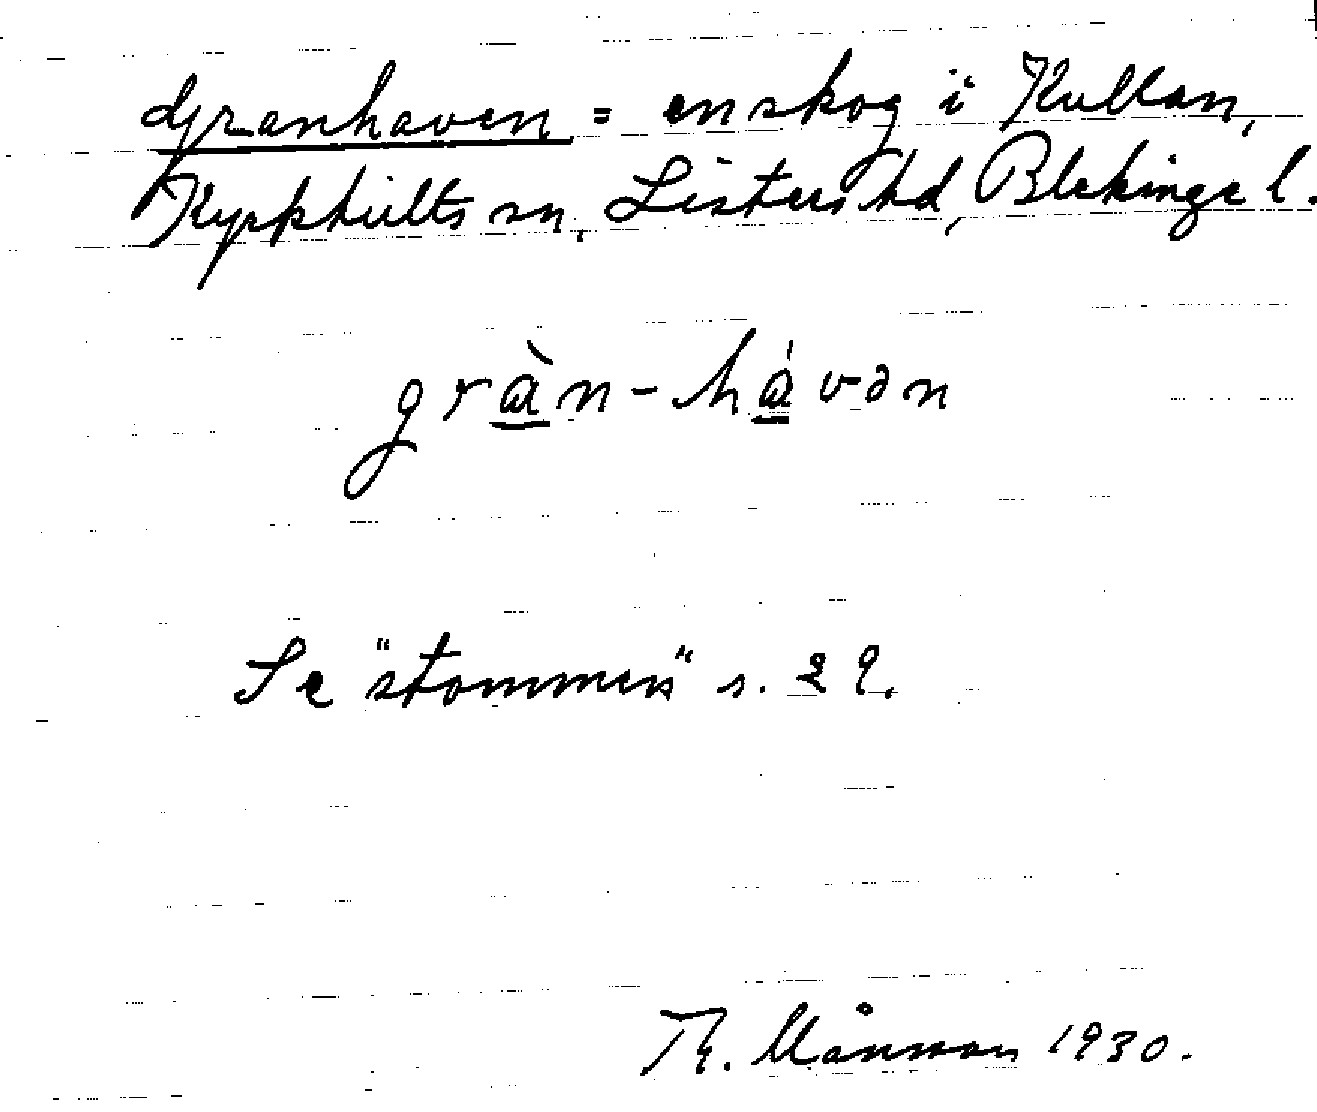 Granhaven = en skog i Kullan,
Kyrkhults sn, Listers hd, Blekinge l.
gràn-hávən
Se "stommen" s. 29.
Th. Månsson 1930.